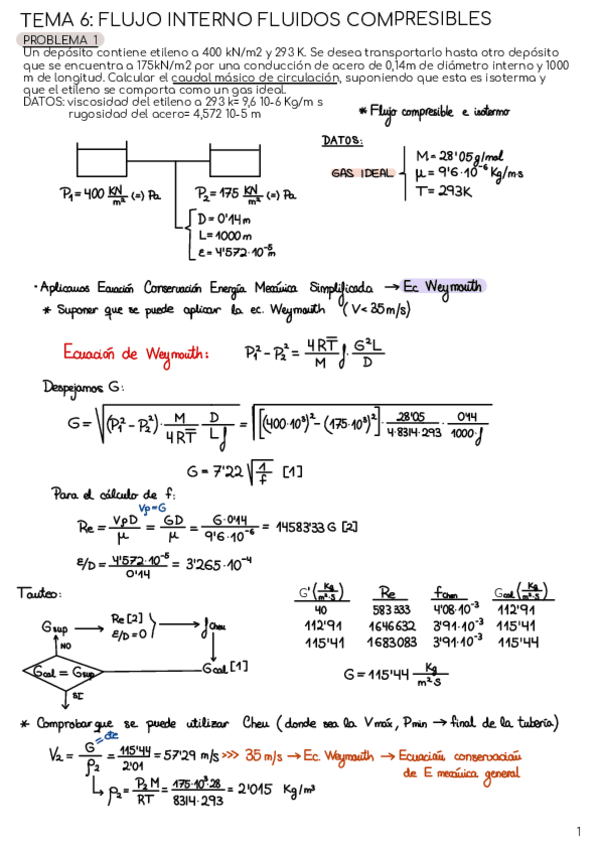 TEMA 6: FLUJO INTERNO FLUIDOS COMPRESIBLES
PROBLEMA 1
Un depósito contiene etileno a 400 kN/m2 y 293 K. Se desea transportarlo hasta otro depósito
que se encuentra a 175kN/m2 por una conducción de acero de 0,14m de diámetro interno y 1000
m de longitud. Calcular el caudal másico de circulación, suponiendo que esta es isoterma y
que el etileno se comporta como un gas ideal.
DATOS: viscosidad del etileno a 293 k= 9,6 10-6 Kg/m s
rugosidad del acero= 4,572 10-5 m
* Flujo compresible e isotermo
DATOS:
GAS IDEAL
M = 28'05 g/mol
μ = 9'6·10⁻⁶ Kg/m·s
T = 293K
P₁ = 400 KN/m² (=) Pa
P₂ = 175 KN/m² (=) Pa
D = 0'14 m
L = 1000 m
ε = 4'572·10⁻⁵ m
· Aplicamos Ecuación Conservación Energía Mecánica Simplificada → Ec Weymouth
* Suponer que se puede aplicar la ec. Weymouth (V < 35 m/s)
Ecuación de Weymouth: P₁² - P₂² = 4RT̅/M f · G²L/D
Despejamos G:
G = √((P₁² - P₂²) · M/4RT̅ · D/Lf) = √([(400·10³)² - (175·10³)²] · 28'05/4·8314·293 · 0'14/1000·f)
G = 7'22 √(1/f) [1]
Para el cálculo de f:
Vρ=G
Re = VρD/μ = GD/μ = G·0'14/9'6·10⁻⁶ = 14583'33 G [2]
ε/D = 4'572·10⁻⁵/0'14 = 3'265·10⁻⁴
Tauteo:
G sup → Re [2] ε/D = 0 → f Cheu
G cal [1]
G cal = G sup
NO
SI
G' (Kg/m²·s) Re f chen G cal (Kg/m²·s)
40 583 333 4'08·10⁻³ 112'91
112'91 1646632 3'91·10⁻³ 115'41
115'41 1683083 3'91·10⁻³ 115'44
G = 115'44 Kg/m²·s
* Comprobar que se puede utilizar Cheu (donde sea la V máx, P min → final de la tubería)
V₂ = G/ρ₂ = 115'44/2'01 = 57'29 m/s >>> 35 m/s → Ec. Weymouth → Ecuación conservación
de E mecánica general
ρ₂ = P₂M/RT = 175·10³·28/8314·293 = 2'015 Kg/m³
1